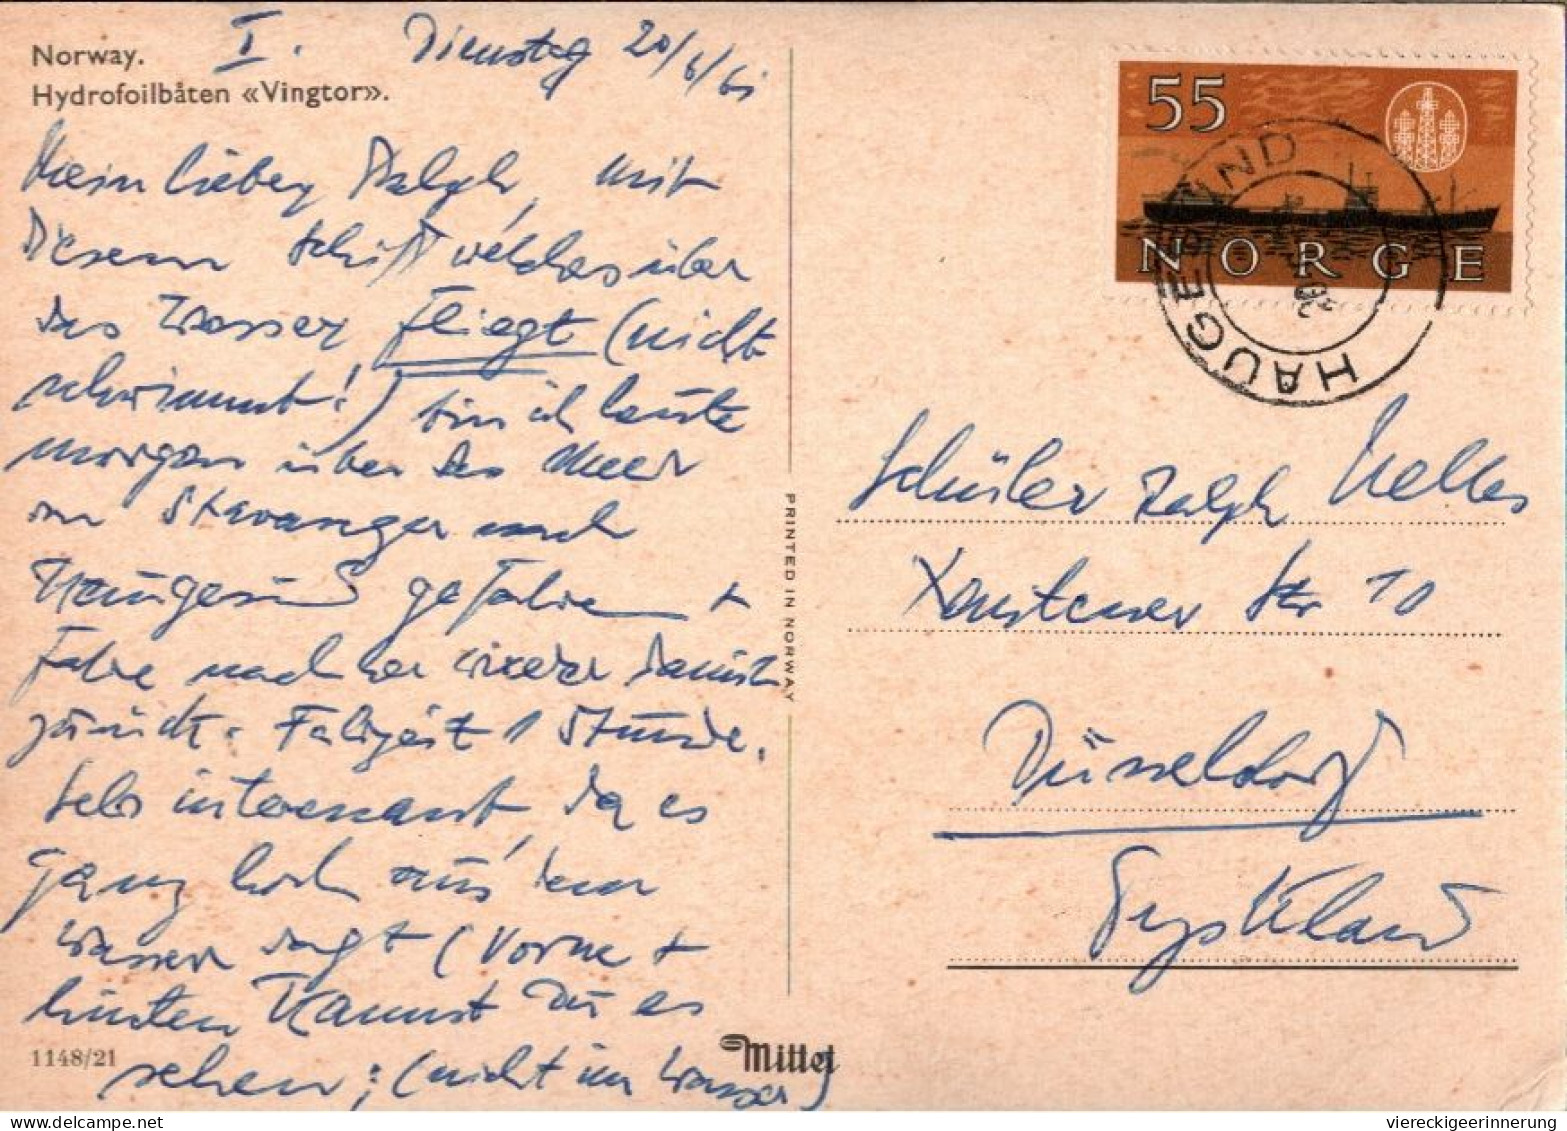 Norway.
Hydrofoilbåten «Vingtor».
I. Dienstag 20/6/61
Mein lieber Ralph, mit
diesem Schiff welches über
das Wasser fliegt (nicht
schwimmt!) bin ich heute
morgen über das Meer
von Stavanger nach
Haugesund gefahren +
fahre nachher wieder damit
zurück. Fahrzeit 1 Stunde.
Sehr interessant, da es
ganz hoch aus dem
Wasser ragt (vorne +
hinten kannst Du es
sehen; (nicht im Wasser)
1148/21
PRINTED IN NORWAY
Mittet
55
NORGE
HAUGESUND
Schüler Ralph Nelles
Xantener Str 10
Düsseldorf
Tyskland
viereckigeerinnerung